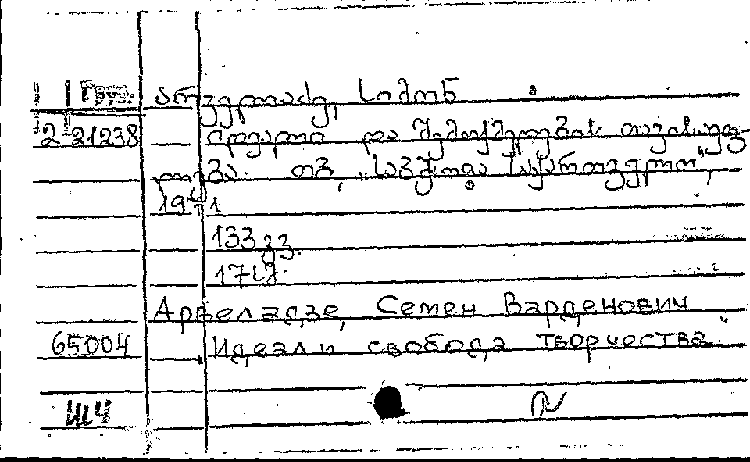 Груз. არველაძე, სიმონ
2-21238 იდეალი და შემოქმედების თავისუფ-
ლება. თბ., „საბჭოთა საქართველო“,
1971
133 გვ.
17 სმ.
Арвеладзе, Семен Варденович
65004 Идеал и свобода творчества.
ШЧ